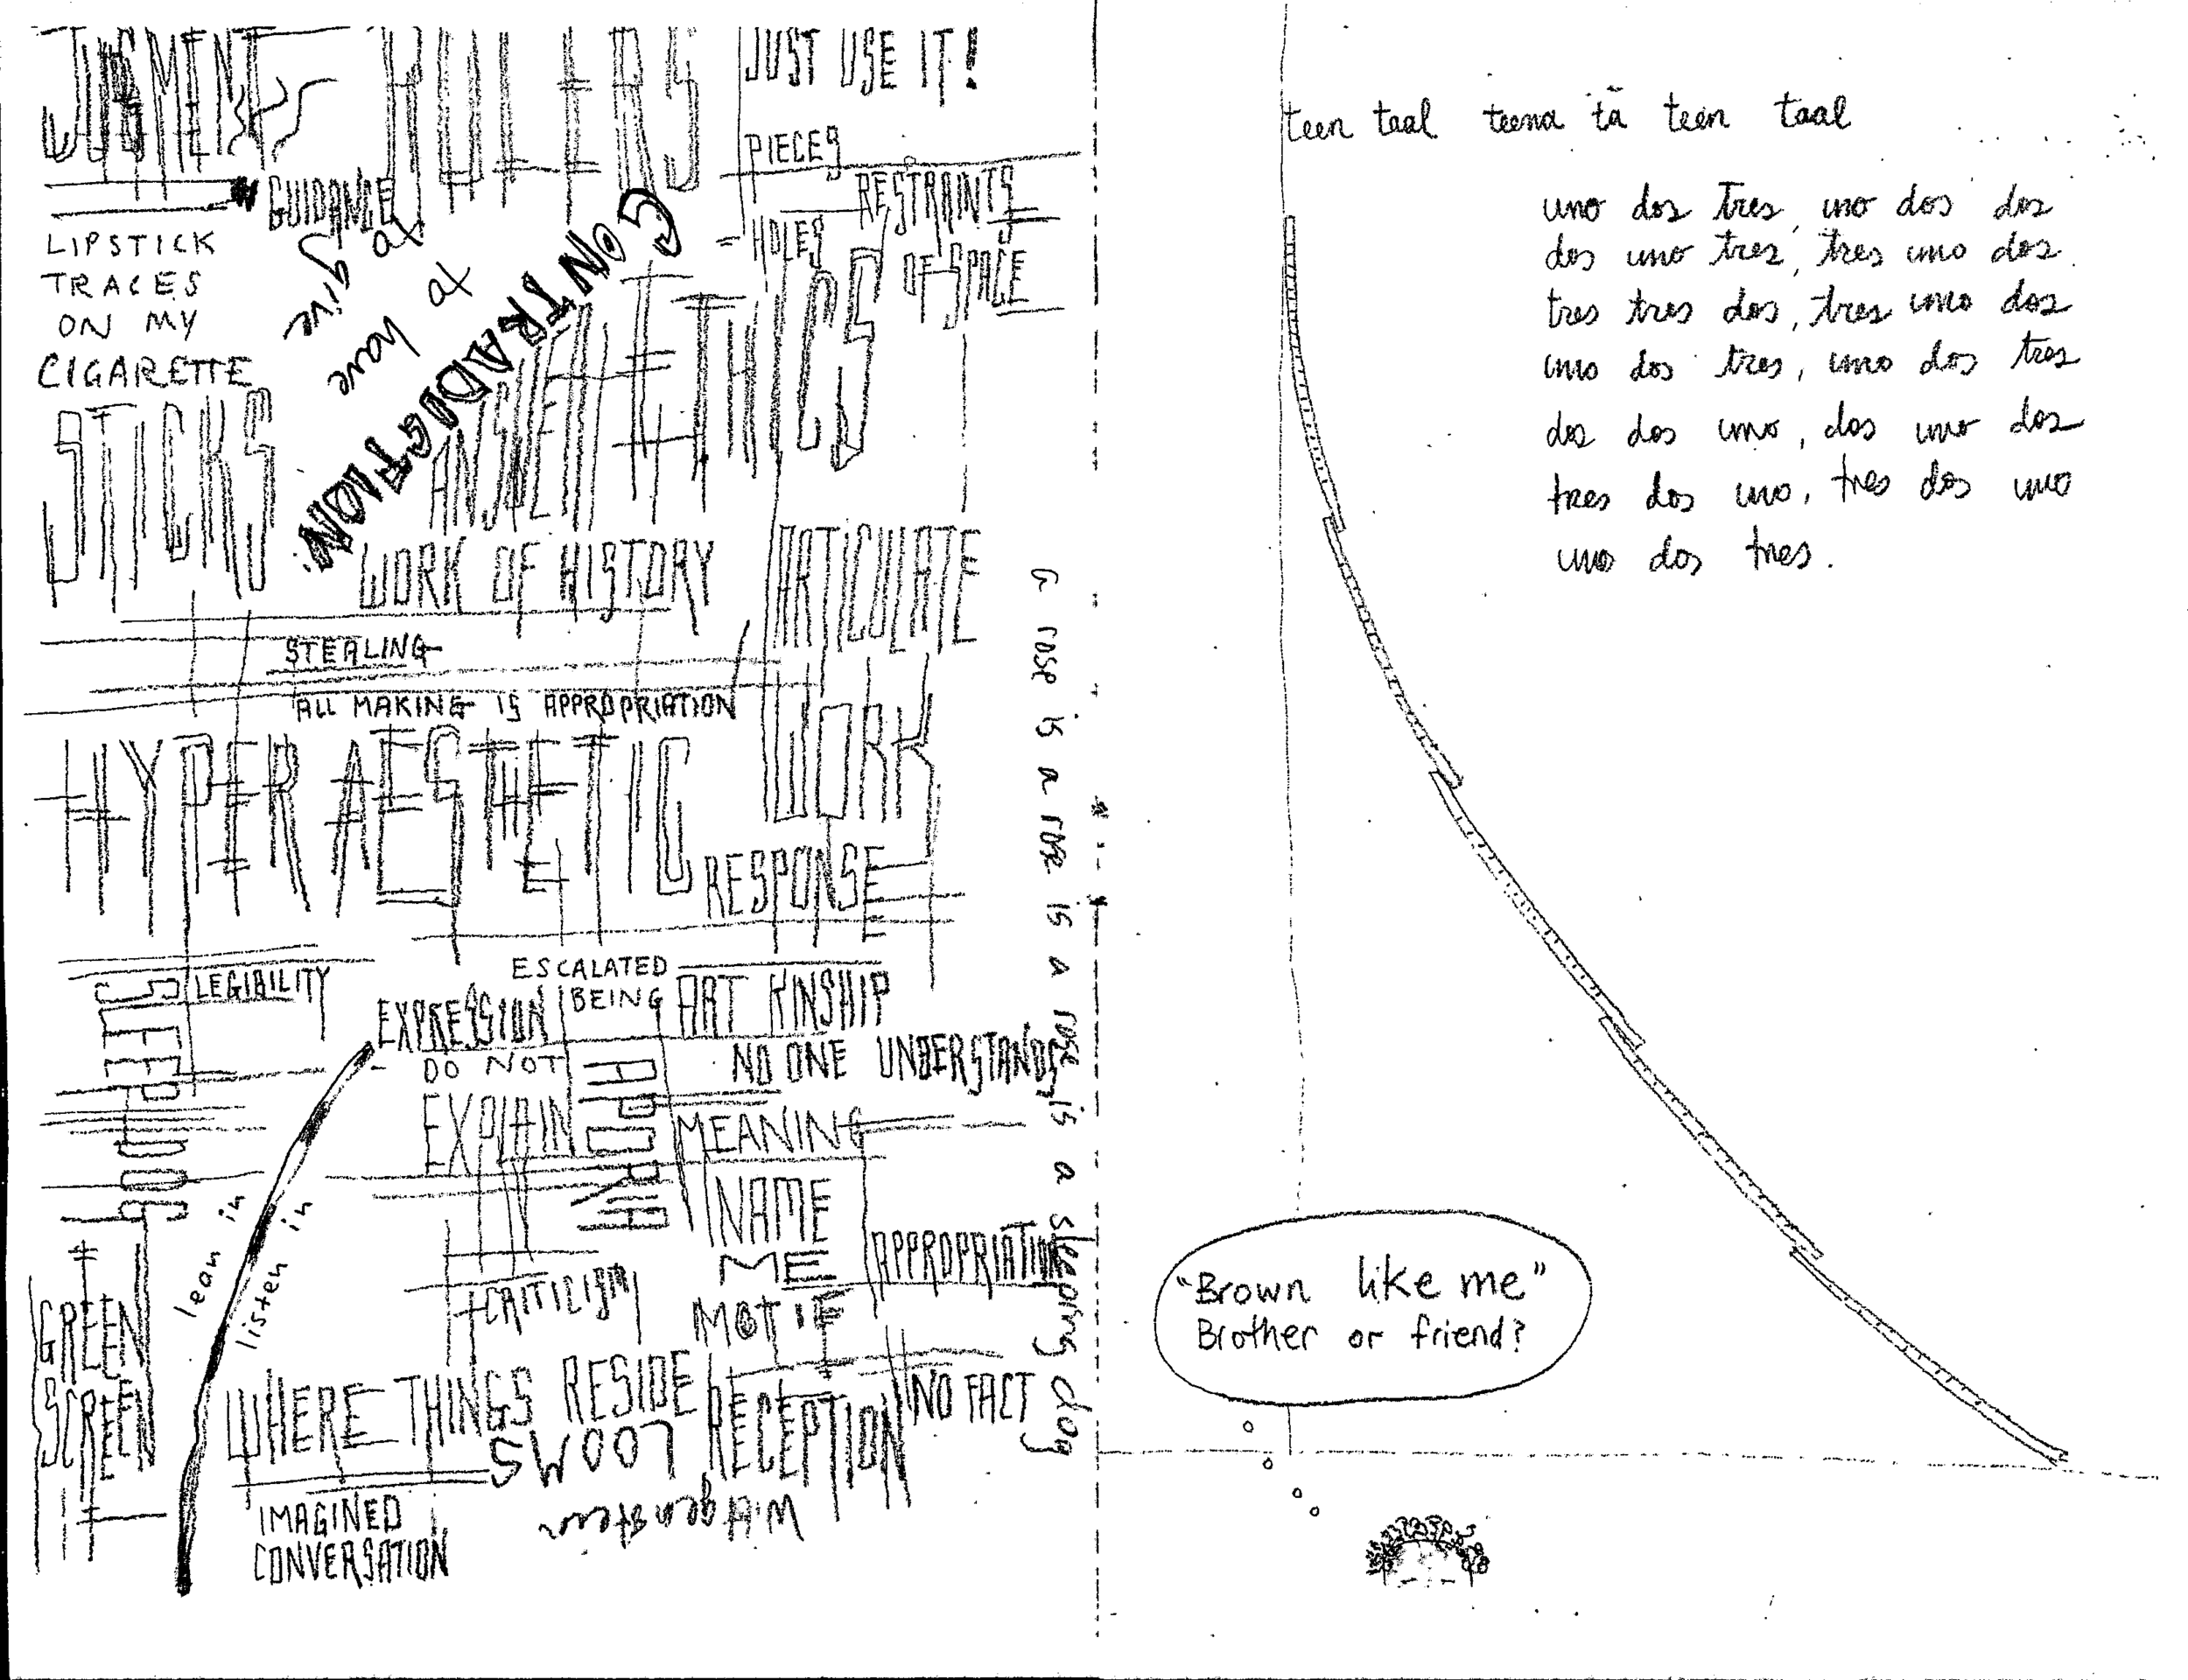 JUDGMENT
RULERS
JUST USE IT!
PIECES
GUIDANCE
RESTRAINTS
OF SPACE
HOLES
LIPSTICK
TRACES
ON MY
CIGARETTE
to give
to have
CONTRADICTION
STICKS
ANSWER
ETHICS
WORK OF HISTORY
ARTICULATE
WORK
STEALING
ALL MAKING IS APPROPRIATION
HYPER AESTHETIC
RESPONSE
a rose is a rose is a rose is a sleeping dog
LEGIBILITY
ESCALATED
BEING
EXPRESSION
ART KINSHIP
DO NOT
EXPLAIN
NO ONE UNDERSTANDS
MEANING
NAME
ME
APPROPRIATION
lean in
listen in
CRITICISM
GREEN
SCREEN
WHERE THINGS RESIDE
LOOMS
RECEPTION
NO FACT
Wittgenstein
IMAGINED
CONVERSATION
teen taal teena tā teen taal
uno dos tres, uno dos dos
dos uno tres, tres uno dos
tres tres dos, tres uno dos
uno dos tres, uno dos tres
dos dos uno, dos uno dos
tres dos uno, tres dos uno
uno dos tres.
"Brown like me"
Brother or friend?